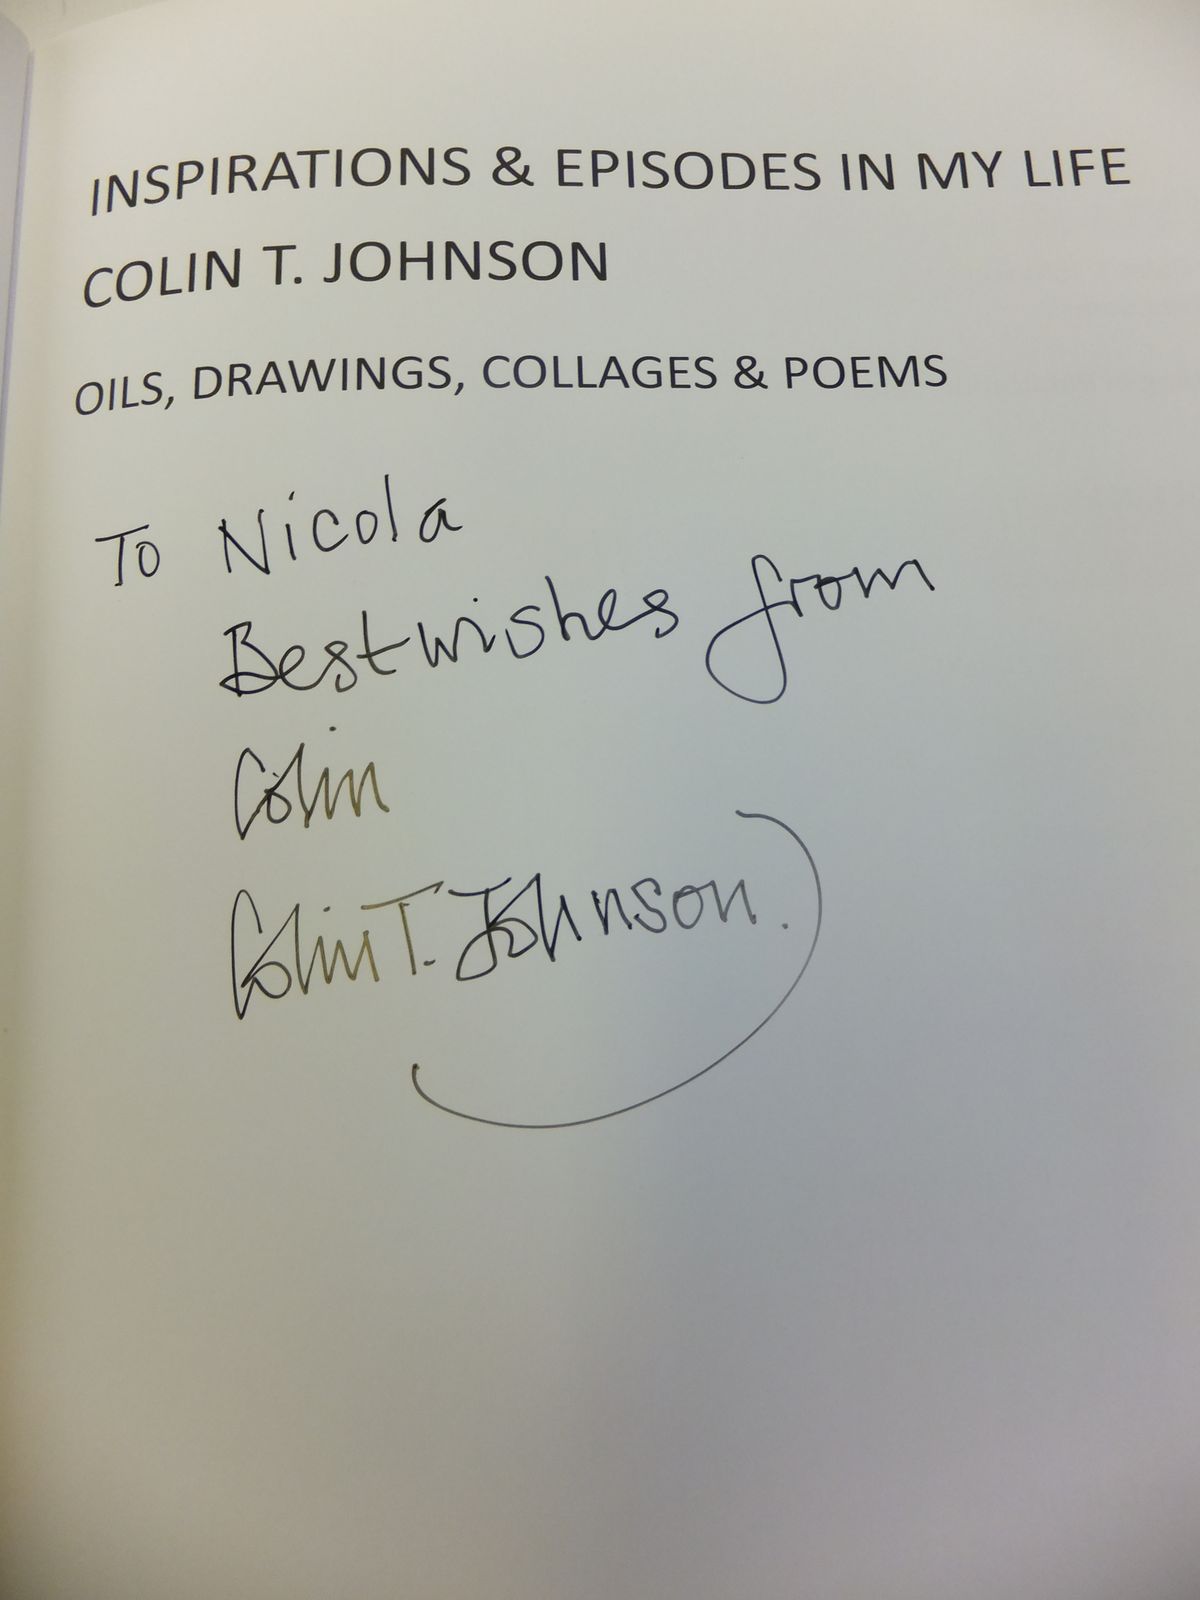 INSPIRATIONS & EPISODES IN MY LIFE
COLIN T. JOHNSON
OILS, DRAWINGS, COLLAGES & POEMS
To Nicola
Best wishes from
Colin
Colin T. Johnson.